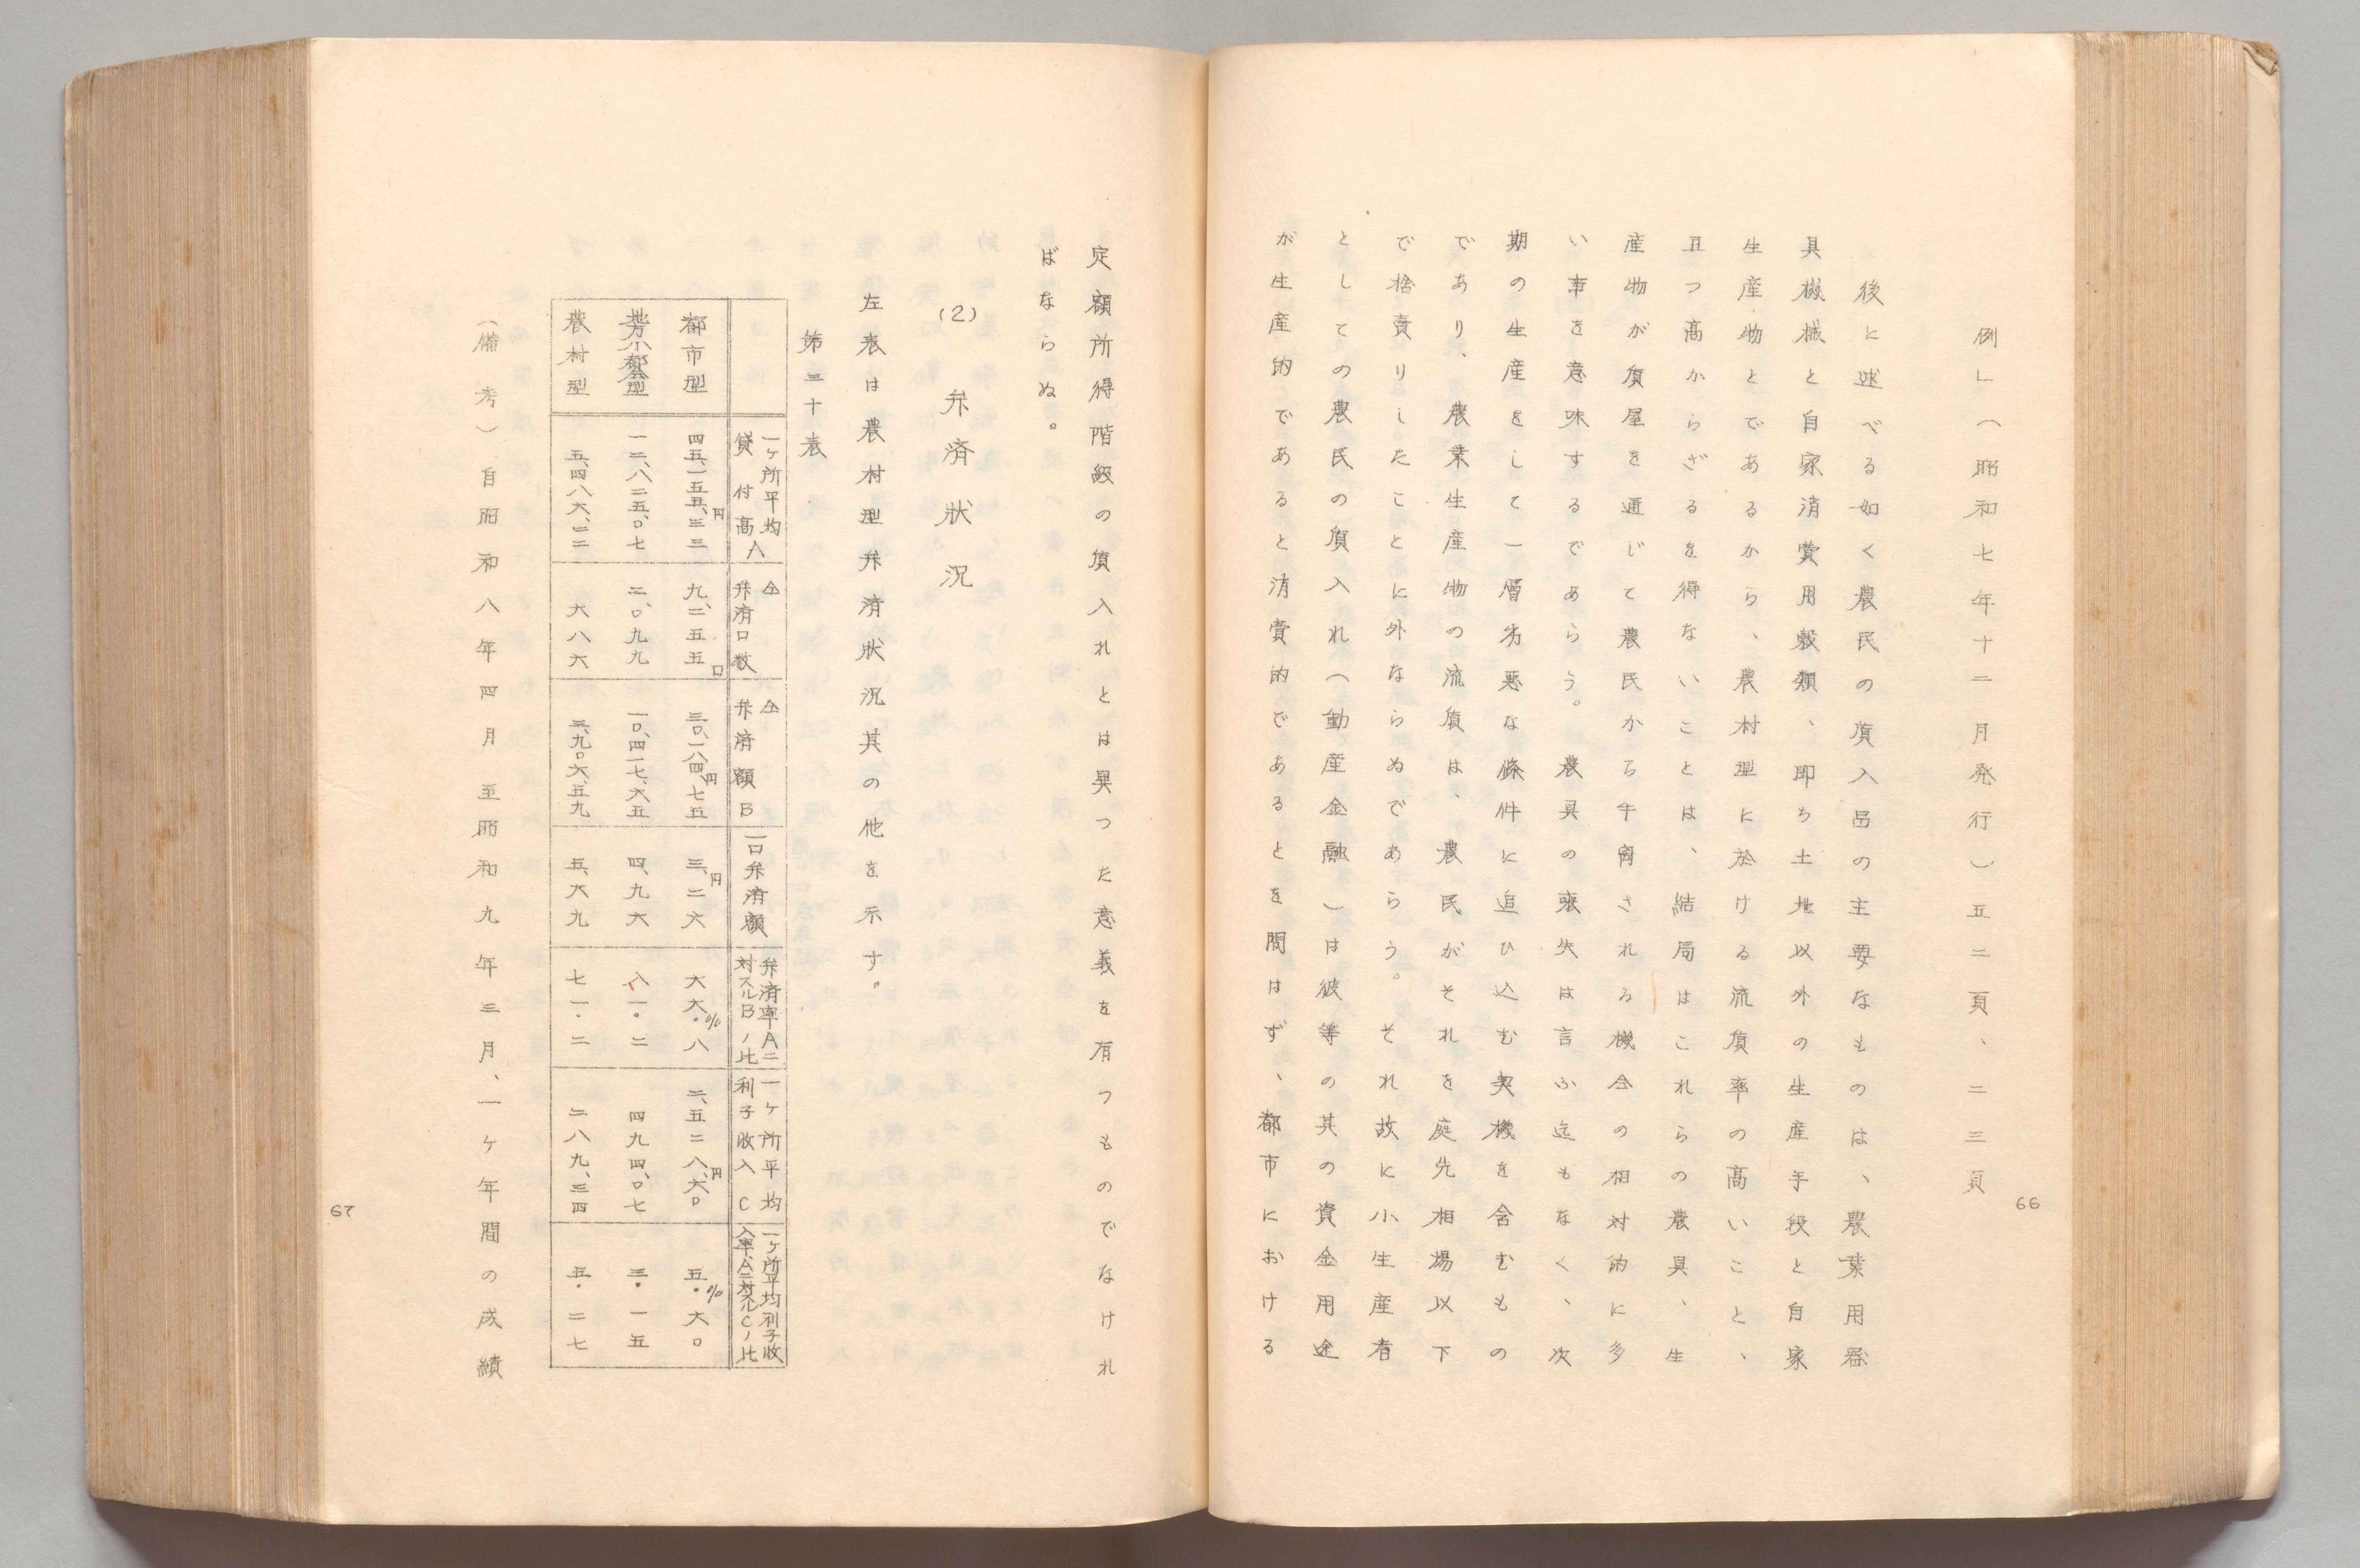 例」(昭和七年十二月発行)五二頁、二三頁
後に述べる如く農民の質入品の主要なものは、農業用器
具機械と自家消費用穀類、即ち土地以外の生産手段と自家
生産物とであるから、農村型に於ける流質率の高いこと、
且つ高からざるを得ないことは、結局はこれらの農具、生
産物が質屋を通じて農民から奪される機会の相対的に多
い事を意味するであらう。農具の喪失は言ふ迄もなく、次
期の生産をして一層劣悪な條件に追ひ込む契機を含むもの
であり、農業生産物の流質は、農民がそれを庭先相場以下
で捨賣りしたことに外ならぬであらう。それ故に小生産者
としての農民の質入れ(動産金融)は彼等の其の資金用途
が生産的であると消費的であるとを問はず、都市における
66
定額所得階級の質入れとは異つた意義を有つものでなけれ
ばならぬ。
(2) 弁済狀況
左表は農村型弁済狀況其の他を示す。
第三十表
一ヶ所平均貸付高A
仝弁済口数
仝弁済額B
一口弁済額
弁済率Aニ対スルBノ比
一ヶ所平均利子收入C
一ヶ所平均利子收入率、Aニ対スルCノ比
都市型 四五、一五五、三三円 九、二五五口 三〇、一八四、七五円 三、二六円 六六・八% 二、五二八、六〇円 五・六〇%
地方小都会型 一二、八二五、〇七 二、〇九九 一〇、四一七、六五 四、九六 八一・二 四九四、〇七 三・一五
農村型 五、四八六、二二 六八六 三、九〇六、五九 五、六九 七一・二 二八九、三四 五・二七
(備考)自昭和八年四月至昭和九年三月、一ヶ年間の成績
67